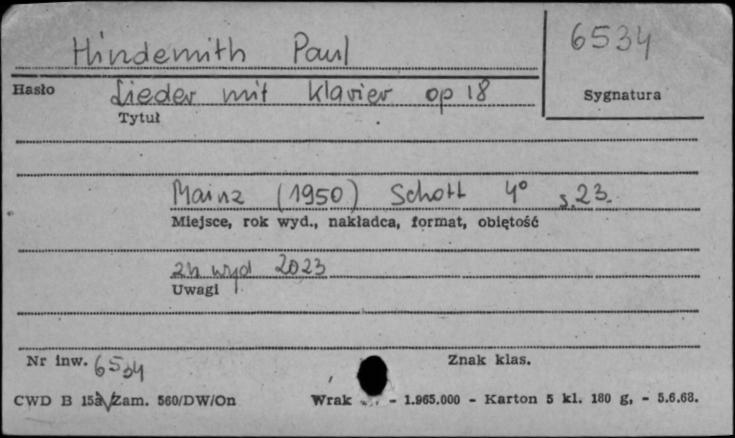 Hindemith Paul
6534
Hasło
Lieder mit Klavier op 18
Sygnatura
Tytuł
Mainz (1950) Schott 4° s.23.
Miejsce, rok wyd., nakładca, format, obiętość
2h wyd 2023
Uwagi
Nr inw. 6534
Znak klas.
CWD B 15a/Zam. 560/DW/On
Wrak - 1.965.000 - Karton 5 kl. 180 g, - 5.6.68.